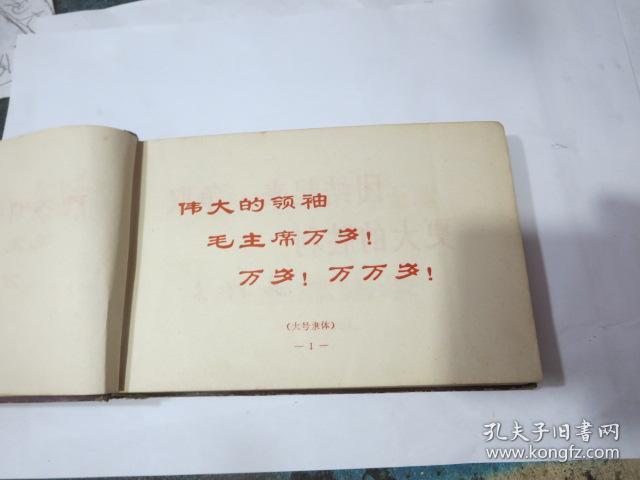 伟大的领袖
毛主席万岁！
万岁！万万岁！
（大号隶体）
— 1 —
孔夫子旧书网
www.kongfz.com